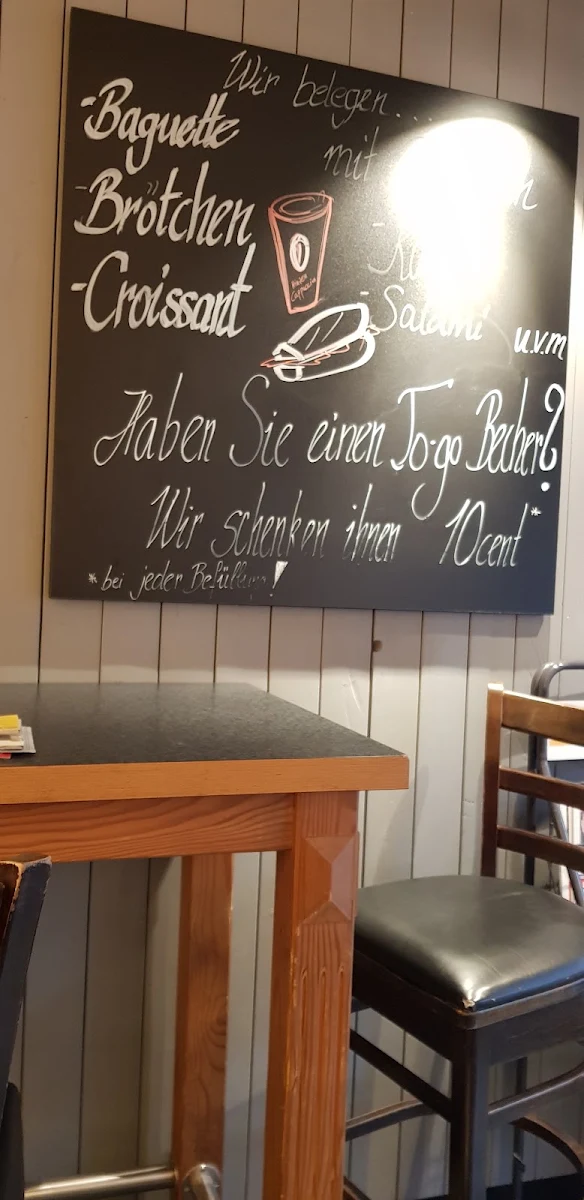 Wir belegen...
-Baguette
mit
-Brötchen
-Croissant
-Salami u.v.m
Haben Sie einen To-go Becher?
Wir schenken ihnen 10cent*
*bei jeder Befüllung!